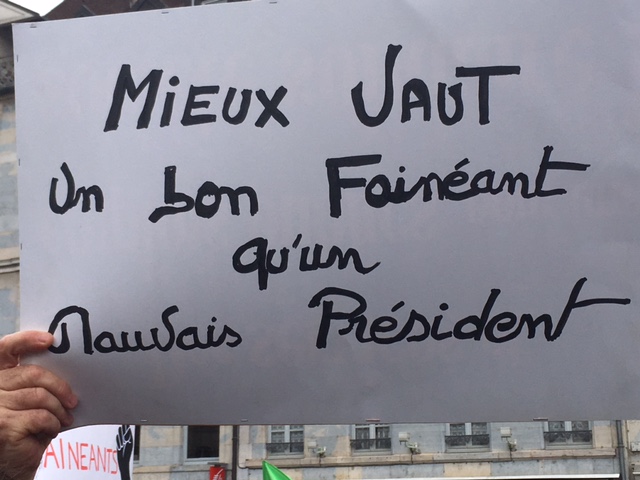 MiEUX VAUT
Un bon Fainéant
qu'un
Mauvais Président
AINEANTS